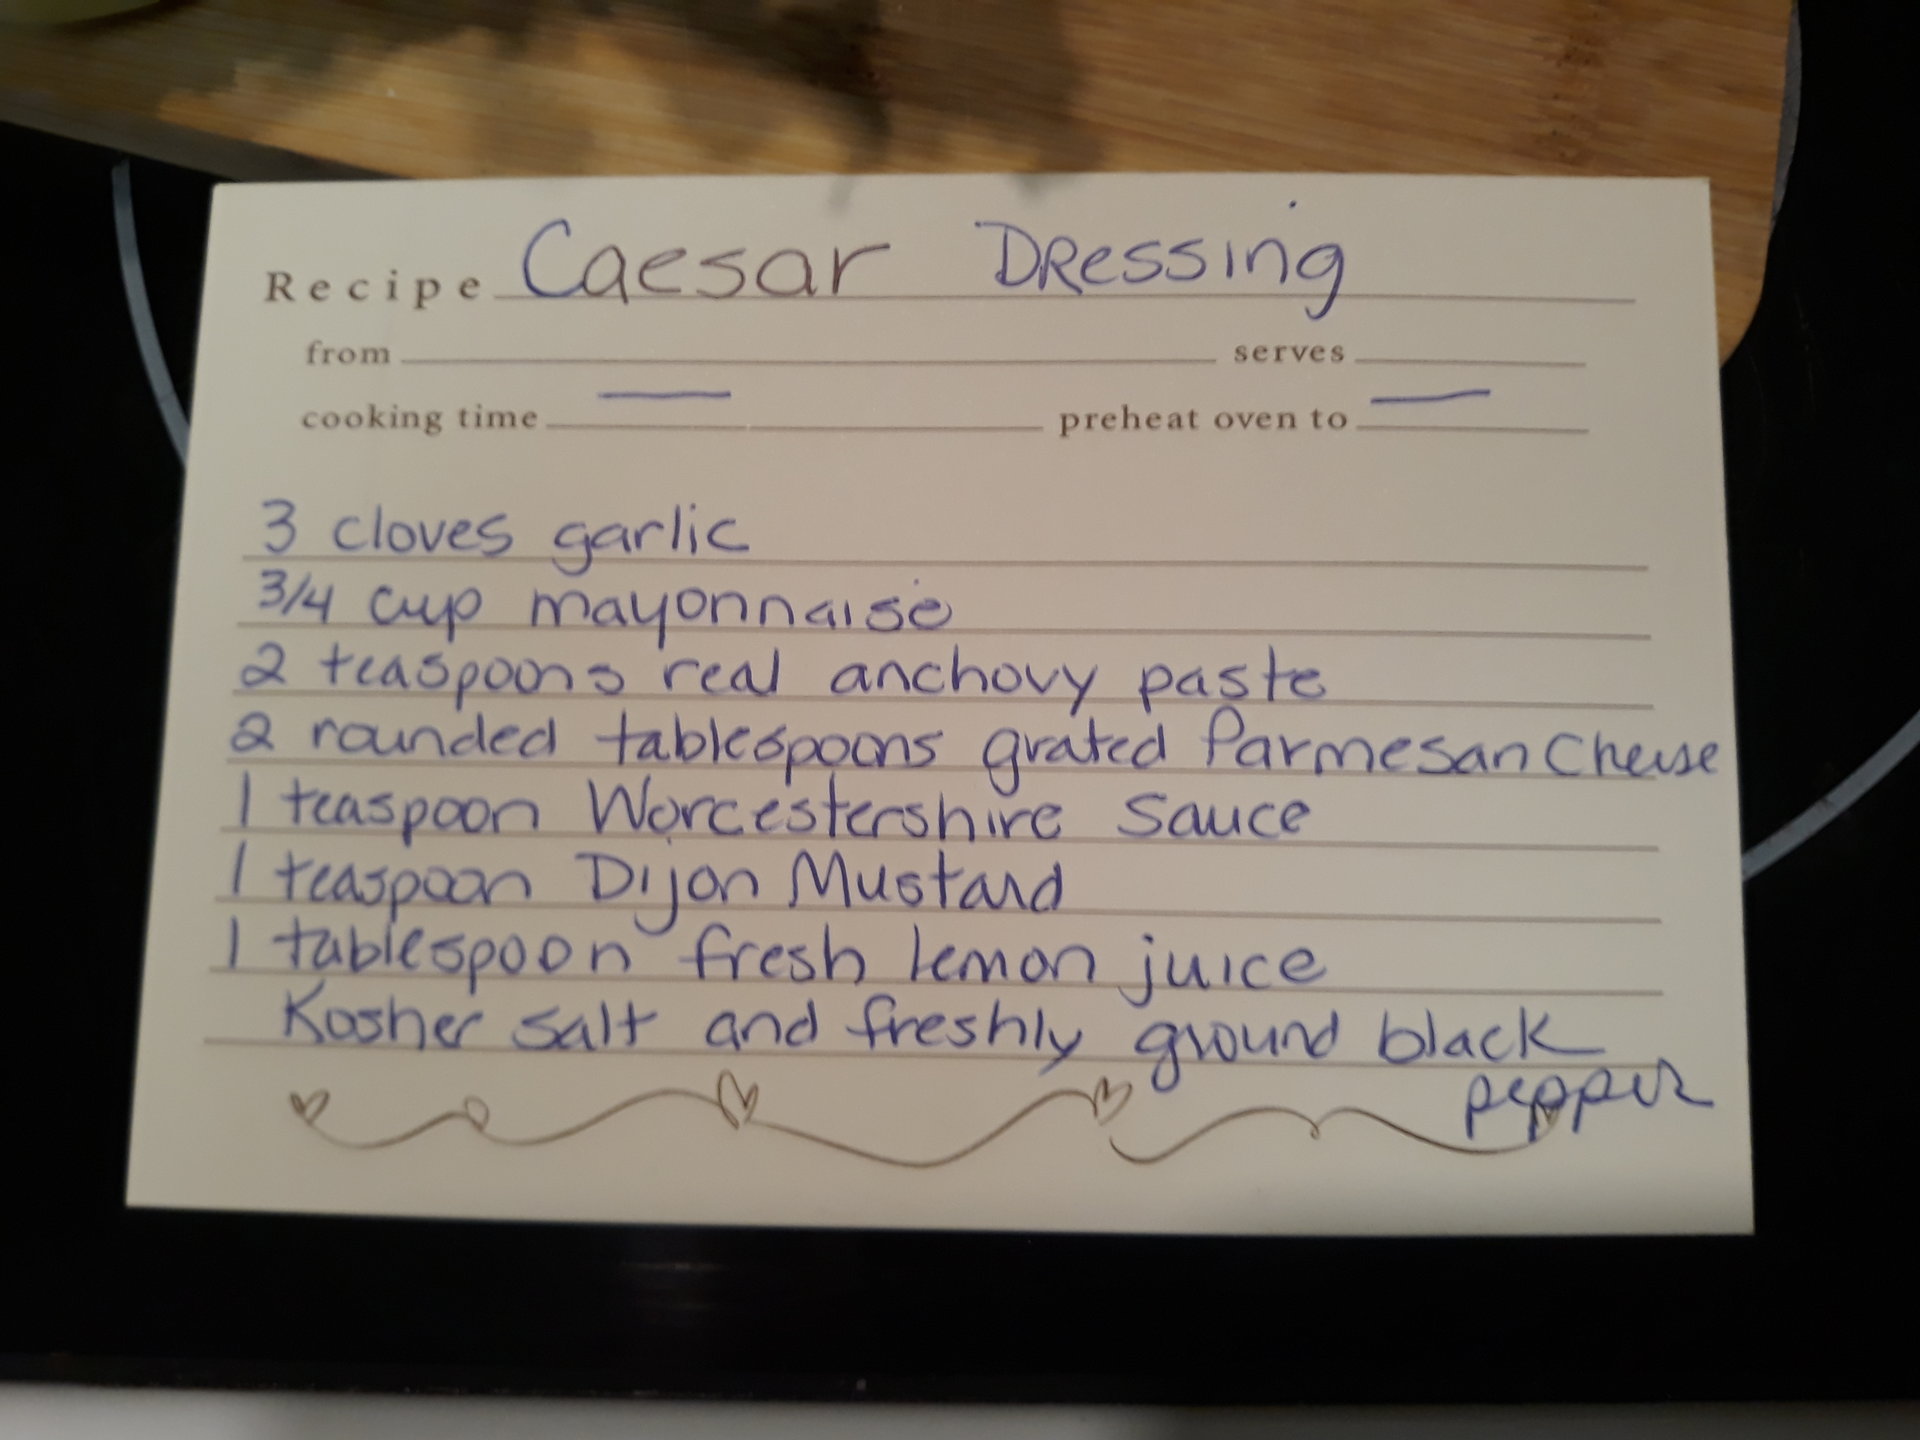 Recipe Caesar Dressing
from serves
cooking time — preheat oven to —
3 cloves garlic
3/4 cup mayonnaise
2 teaspoons real anchovy paste
2 rounded tablespoons grated Parmesan Cheese
1 teaspoon Worcestershire Sauce
1 teaspoon Dijon Mustard
1 tablespoon fresh lemon juice
Kosher salt and freshly ground black
pepper